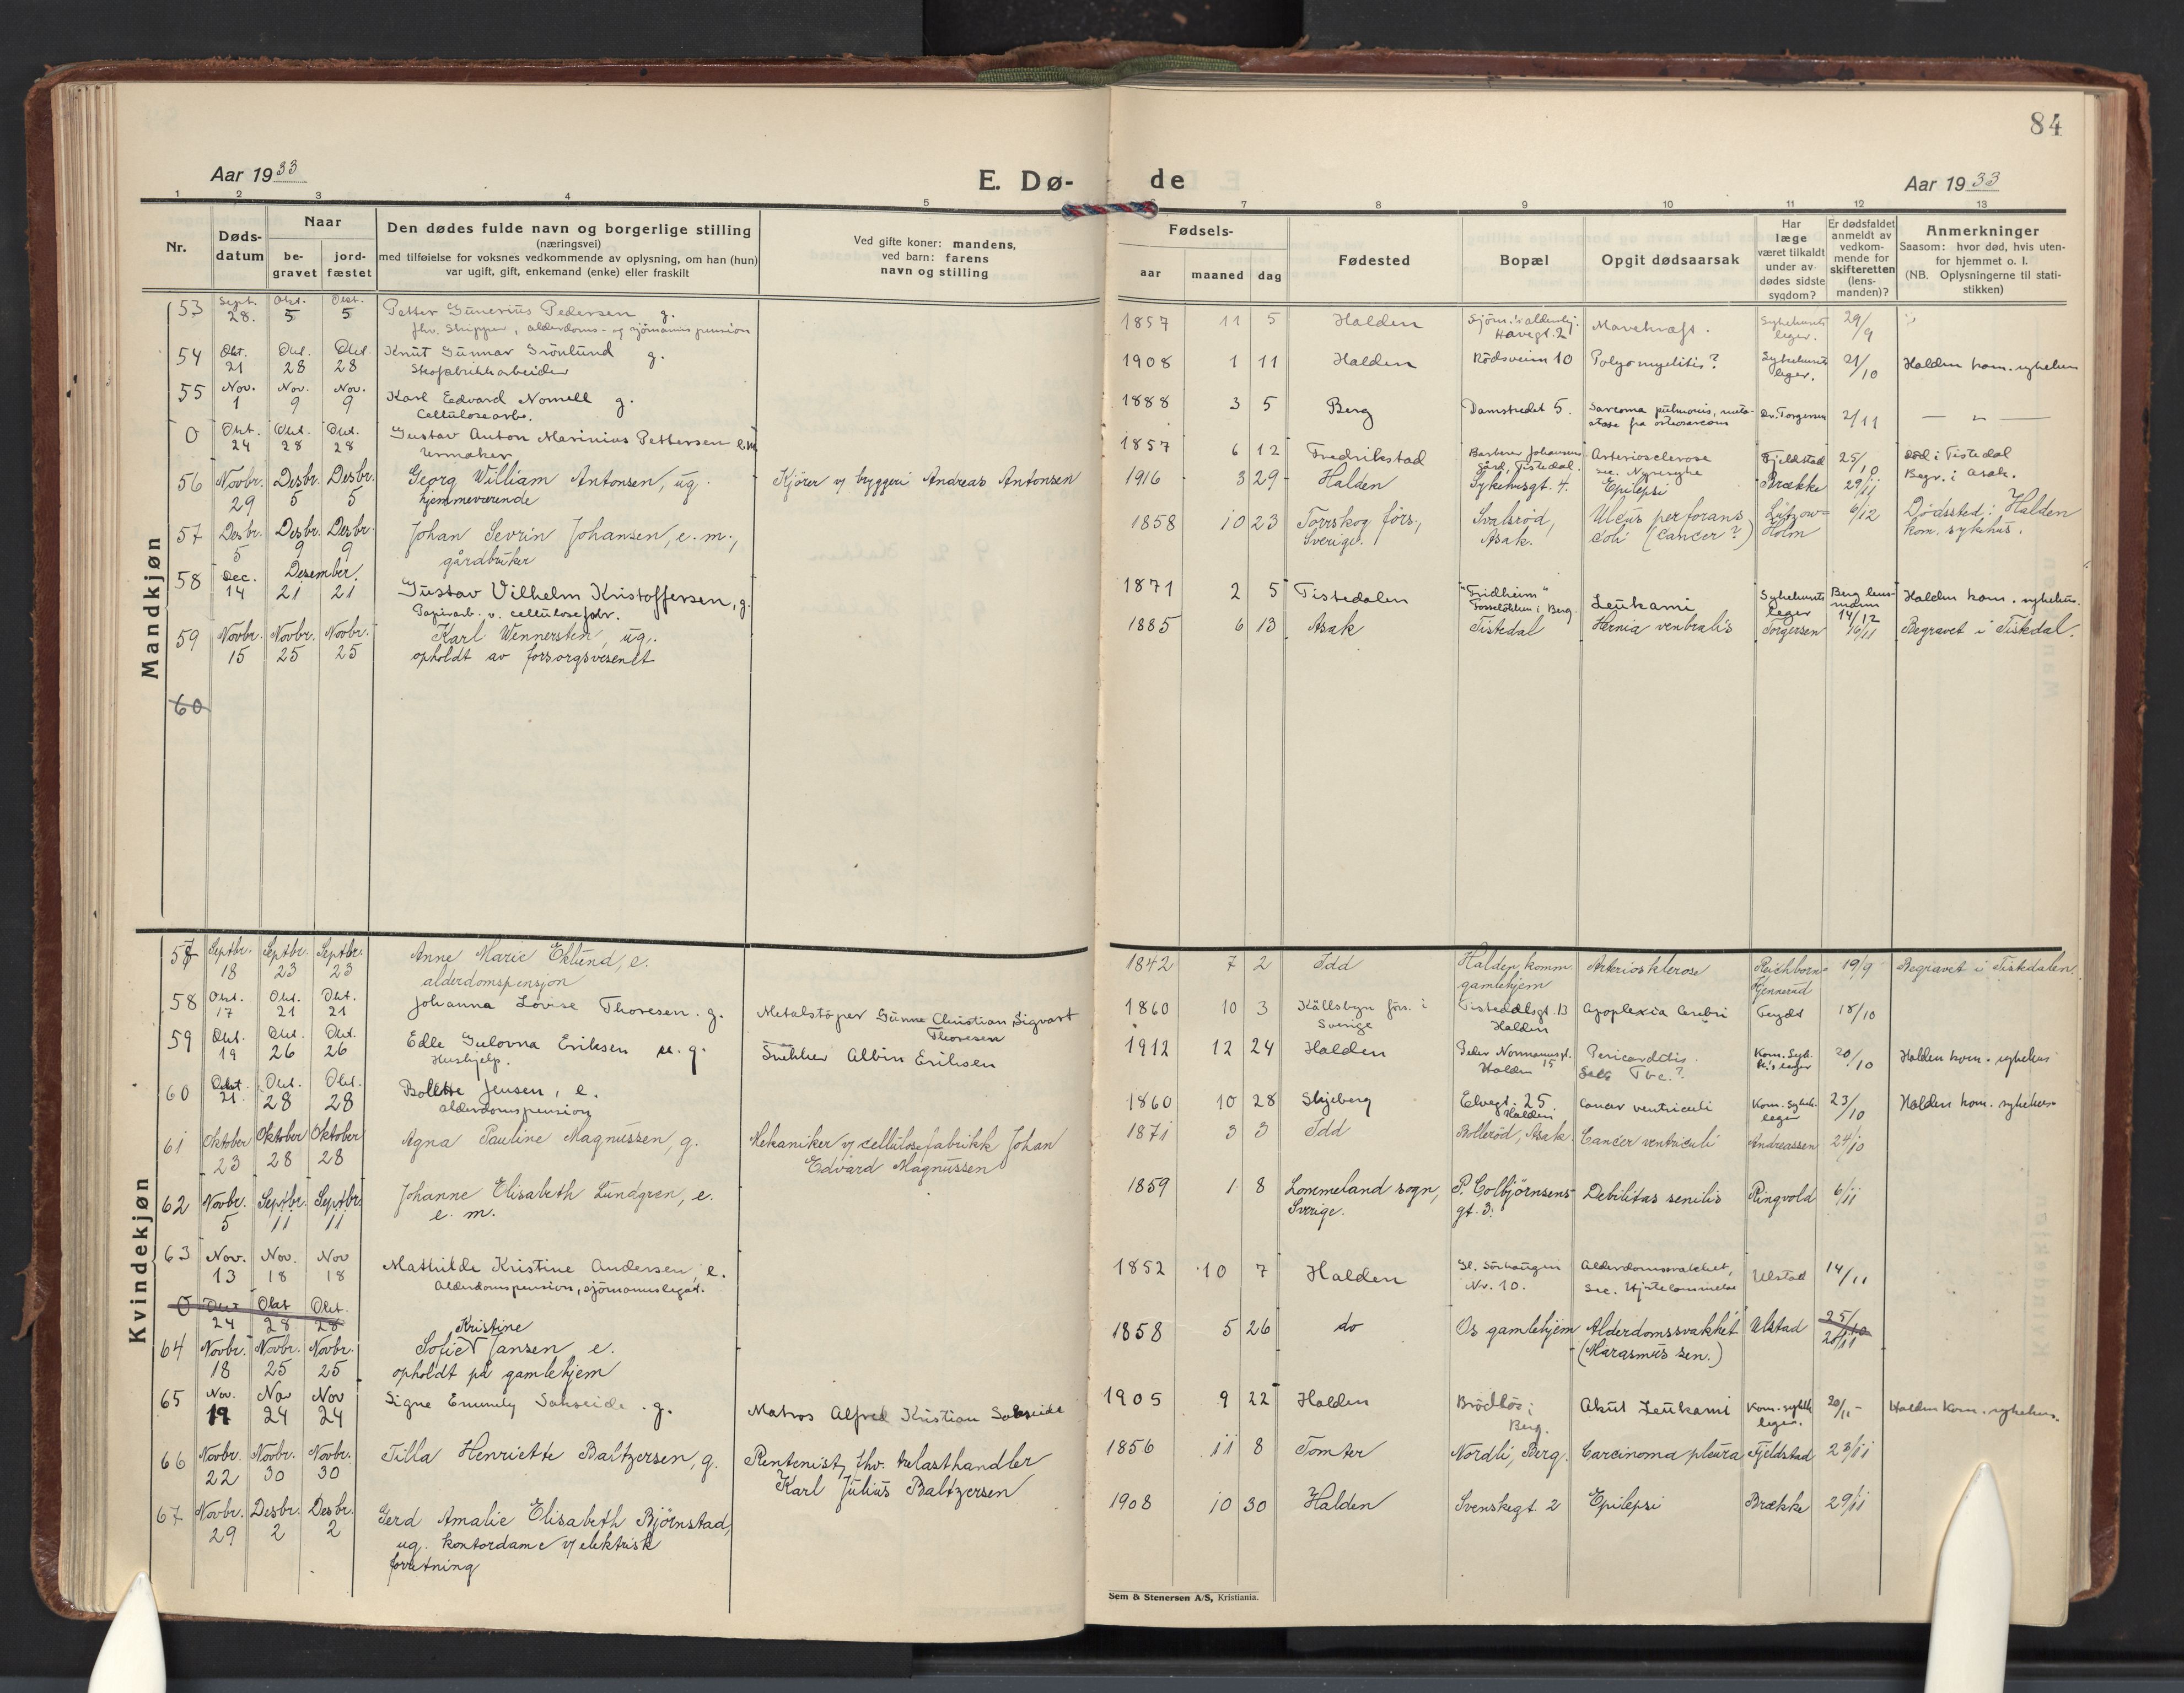 84
Aar 1933
E. Dø-
de
Aar 1933
1 2 3 4 5 6 7 8 9 10 11 12 13
Nr.
Døds-
datum
Naar
be-
gravet
jord-
fæstet
Den dødes fulde navn og borgerlige stilling
(næringsvei)
med tilføielse for voksnes vedkommende av oplysning, om han (hun)
var ugift, gift, enkemand (enke) eller fraskilt
Ved gifte koner: mandens,
ved barn: farens
navn og stilling
Fødsels-
aar maaned dag
Fødested
Bopæl
Opgit dødsaarsak
Har
læge
været tilkaldt
under av-
dødes sidste
sygdom?
Er dødsfaldet
anmeldt av
vedkom-
mende for
skifteretten
(lens-
manden)?
Anmerkninger
Saasom: hvor død, hvis uten-
for hjemmet o. l.
(NB. Oplysningerne til stati-
stikken)
Mandkjøn
53 Sept. 28. Okt. 5 Okt. 5 Petter Gunerius Pedersen g.
fhv. Skipper, alderdoms- og sjömanns pension
1857 11 5 Halden Sjöm.'s alderhj. Havegt. 2 Mavekraft. Sykehusets leger. 29/9
54 Okt. 21 Okt. 28 Okt. 28 Knut Gunnar Grönlund g.
Skofabrikkarbeider
1908 1 11 Halden Rödsveien 10 Polyomyelitis? Sykehusets leger. 21/10 Halden kom. sykehus
55 Nov. 1 Nov. 9 Nov. 9 Karl Edvard Nomell g.
Cellulosearb.
1888 3 5 Berg Damstredet 5. Sarcoma pulmonis, meta-
stase fra osteosarcom Dr. Torgersen 2/11 — „ —
0 Okt. 24 Okt. 28 Okt. 28 Gustav Anton Marinius Pettersen e.m.
Urmaker
1857 6 12 Fredrikstad Barberer Johansens Gård, Tistedal. Arteriosclerose sec. Nyresyke Fjeldstad 25/10 död i Tistedal
Begr. i Asak.
56 Novbr. 29 Desbr. 5 Desbr. 5 Georg William Antonsen, ug.
hjemmeværende
Kjörer v/ bryggeri Andreas Antonsen
1916 3 29 Halden Sykehusgt. 4. Epilepsi Brække 29/11
57 Desbr. 5 Desbr. 9 Desbr. 9 Johan Sevrin Johansen, e. m.,
gårdbruker
1858 10 23 Torrskog förs., Sverige. Svalsröd, Asak. Ulcus perforans coli (cancer?) Lützow-Holm 6/12 Dödssted: Halden
kom. sykehus.
58 Dec. 14 Desember. 21 21 Gustav Vilhelm Kristoffersen, g.
Papirarb. v. cellulosefabr.
1871 2 5 Tistedalen "Fridheim" Fosselökken i Berg. Leukami Sykehusets leger Berg lens-
mann 14/12 Halden kom. sykehus.
59 Novbr. 15 Novbr. 25 Novbr. 25 Karl Wennersten, ug.
opholdt av forsorgsvesenet
1885 6 13 Asak Tistedal Hernia ventralis Torgersen 16/11 Begravet i Tistedal.
60
Kvindekjøn
57 Septbr. 18 Septbr. 23 Septbr. 23 Anne Marie Eklund, e.
alderdomspensjon
1842 7 2 Idd Halden komm. gamlehjem Arteriosklerose Reichborn-Kjennerud 19/9 Begravet i Tistedalen.
58 Okt. 17 Okt. 21 Okt. 21 Johanna Lovise Thoresen. g.
Metalstöper Gunne Christian Sigvart
Thoresen
1860 10 3 Källsbyn förs. i Sverige Tistedalsgt. 13 Halden Apoplexia Cerebri Feydt 18/10
59 Okt. 19 Okt. 26 Okt. 26 Edle Gulovna Eriksen g.
Hushjelp.
Snekker Albin Eriksen
1912 12 24 Halden Peder Normannsgt. 15 Halden Pericarditis. Tbc.? Kom. Syk-
h.'s leger 20/10 Halden kom. sykehus
60 Okt. 21. Okt. 28 Okt. 28 Bolette Jensen, e.
alderdomspension
1860 10 28 Skjeberg Elvegt. 25 Halden Cancer ventriculi Kom. Sykeh. leger 23/10 Halden kom. sykehus
61 Oktober 23 Oktober 28 Oktober 28 Agna Pauline Magnussen, g.
Mekaniker v/ cellulosefabrikk Johan
Edvard Magnussen
1871 3 3 Idd Bolleröd, Asak. Cancer ventriculi Andreassen 24/10
62 Novbr. 5 Septbr. 11 Septbr. 11 Johanne Elisabeth Lundgren, e.
e. m.
1859 1 8 Lommeland sogn, Sverige. P. Colbjörnsens-
gt. 3. Debilitas senilis Ringvold 6/11
63 Nov. 13 Nov. 18 Nov 18 Mathilde Kristine Andersen, e.
Alderdomspension, sjömannslegat.
1852 10 7 Halden Gl. Sörhaugen Nr. 10. Alderdomssvakhet, Sec. Hjertelammelse Ulstad 14/11
0 Okt 24 Okt 28 Okt. 28
64 Novbr. 18 Novbr. 25 Novbr. 25 Kristine
Sofie Jansen e.
opholdt på gamlehjem
1858 5 26 do Os gamlehjem Alderdomssvakhet
(Marasmus sen.) Ulstad 25/10
20/11
65 Nov. 19 Nov 24 Nov 24 Signe Emmely Sakseide. g.
Matros Alfred Kristian Sakseide
1905 9 22 Halden Brödlös i Berg. Akut Leukami Kom. sykeh. leger. 20/11 Halden kom. sykehus.
66 Novbr. 22 Novbr. 30 Novbr. 30 Tilla Henriette Baltzersen, g.
Rentenist, fhv. trelasthandler
Karl Julius Baltzersen
1856 11 8 Tomter Nordli, Berg. Carcinoma pleura Fjeldstad 23/11
67 Novbr. 29 Desbr. 2 Desbr. 2 Gerd Amalie Elisabeth Björnstad,
ug. kontordame v/ elektrisk
forretning
1908 10 30 Halden Svenskegt 2 Epilepsi Brække 29/11
Sem & Stenersen A/S, Kristiania.